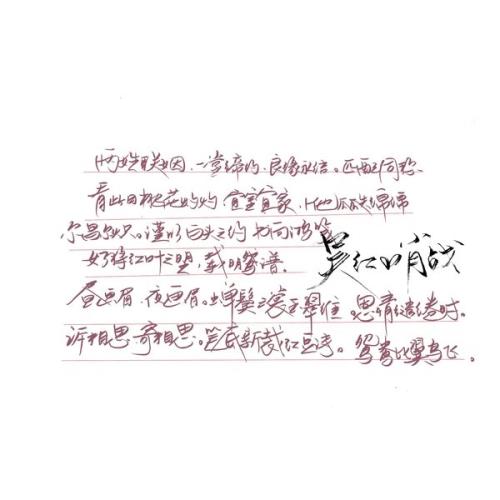 两姓联姻,一堂缔约,良缘永结。匹配同称。
看此日桃花灼灼,宜室宜家,卜他年瓜瓞绵绵
尔昌尔炽。谨以白头之约,书向鸿笺
好将红叶之盟,载明鸳谱。
昼画眉,夜画眉。蝉鬓 思情缱绻时。
诉相思,寄相思。笺試新裁红豆诗。鸳鸯比翼飞。
吴红